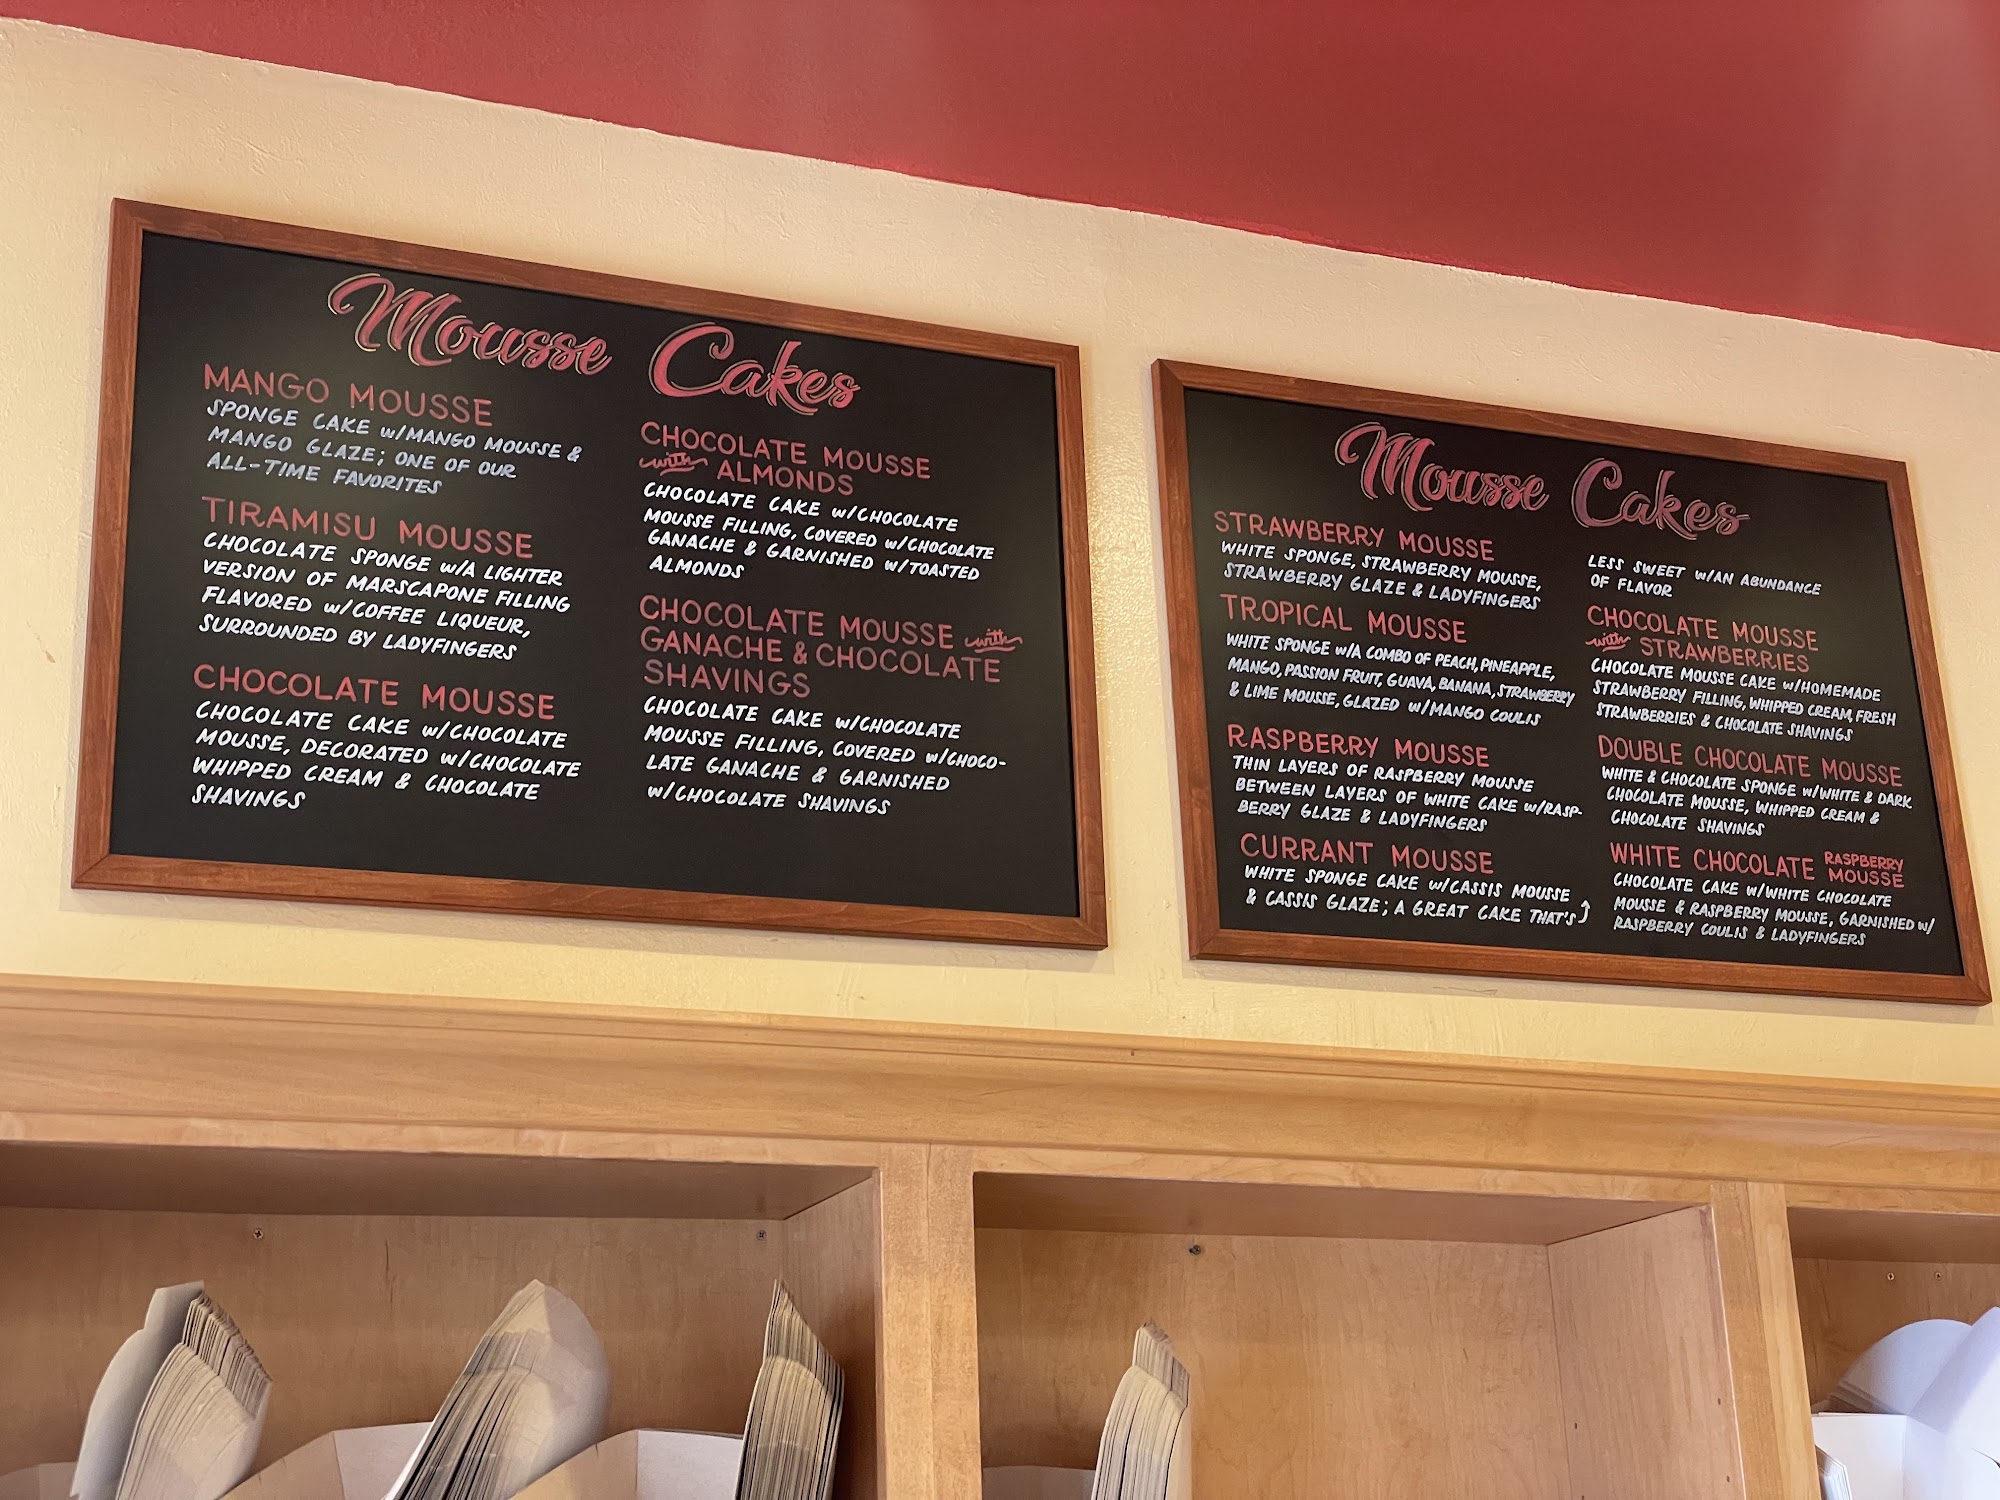 Mousse Cakes
MANGO MOUSSE
SPONGE CAKE W/MANGO MOUSSE &
MANGO GLAZE; ONE OF OUR
ALL-TIME FAVORITES
TIRAMISU MOUSSE
CHOCOLATE SPONGE W/A LIGHTER
VERSION OF MARSCAPONE FILLING
FLAVORED W/COFFEE LIQUEUR,
SURROUNDED BY LADYFINGERS
CHOCOLATE MOUSSE
CHOCOLATE CAKE W/CHOCOLATE
MOUSSE, DECORATED W/CHOCOLATE
WHIPPED CREAM & CHOCOLATE
SHAVINGS
CHOCOLATE MOUSSE
with ALMONDS
CHOCOLATE CAKE W/CHOCOLATE
MOUSSE FILLING, COVERED W/CHOCOLATE
GANACHE & GARNISHED W/TOASTED
ALMONDS
CHOCOLATE MOUSSE with
GANACHE & CHOCOLATE
SHAVINGS
CHOCOLATE CAKE W/CHOCOLATE
MOUSSE FILLING, COVERED W/CHOCO-
LATE GANACHE & GARNISHED
W/CHOCOLATE SHAVINGS
Mousse Cakes
STRAWBERRY MOUSSE
WHITE SPONGE, STRAWBERRY MOUSSE,
STRAWBERRY GLAZE & LADYFINGERS
TROPICAL MOUSSE
WHITE SPONGE W/A COMBO OF PEACH, PINEAPPLE,
MANGO, PASSION FRUIT, GUAVA, BANANA, STRAWBERRY
& LIME MOUSSE, GLAZED W/MANGO COULIS
RASPBERRY MOUSSE
THIN LAYERS OF RASPBERRY MOUSSE
BETWEEN LAYERS OF WHITE CAKE W/RASP-
BERRY GLAZE & LADYFINGERS
CURRANT MOUSSE
WHITE SPONGE CAKE W/CASSIS MOUSSE
& CASSIS GLAZE; A GREAT CAKE THAT'S
LESS SWEET W/AN ABUNDANCE
OF FLAVOR
CHOCOLATE MOUSSE
with STRAWBERRIES
CHOCOLATE MOUSSE CAKE W/HOMEMADE
STRAWBERRY FILLING, WHIPPED CREAM, FRESH
STRAWBERRIES & CHOCOLATE SHAVINGS
DOUBLE CHOCOLATE MOUSSE
WHITE & CHOCOLATE SPONGE W/WHITE & DARK
CHOCOLATE MOUSSE, WHIPPED CREAM &
CHOCOLATE SHAVINGS
WHITE CHOCOLATE RASPBERRY MOUSSE
CHOCOLATE CAKE W/WHITE CHOCOLATE
MOUSSE & RASPBERRY MOUSSE, GARNISHED W/
RASPBERRY COULIS & LADYFINGERS